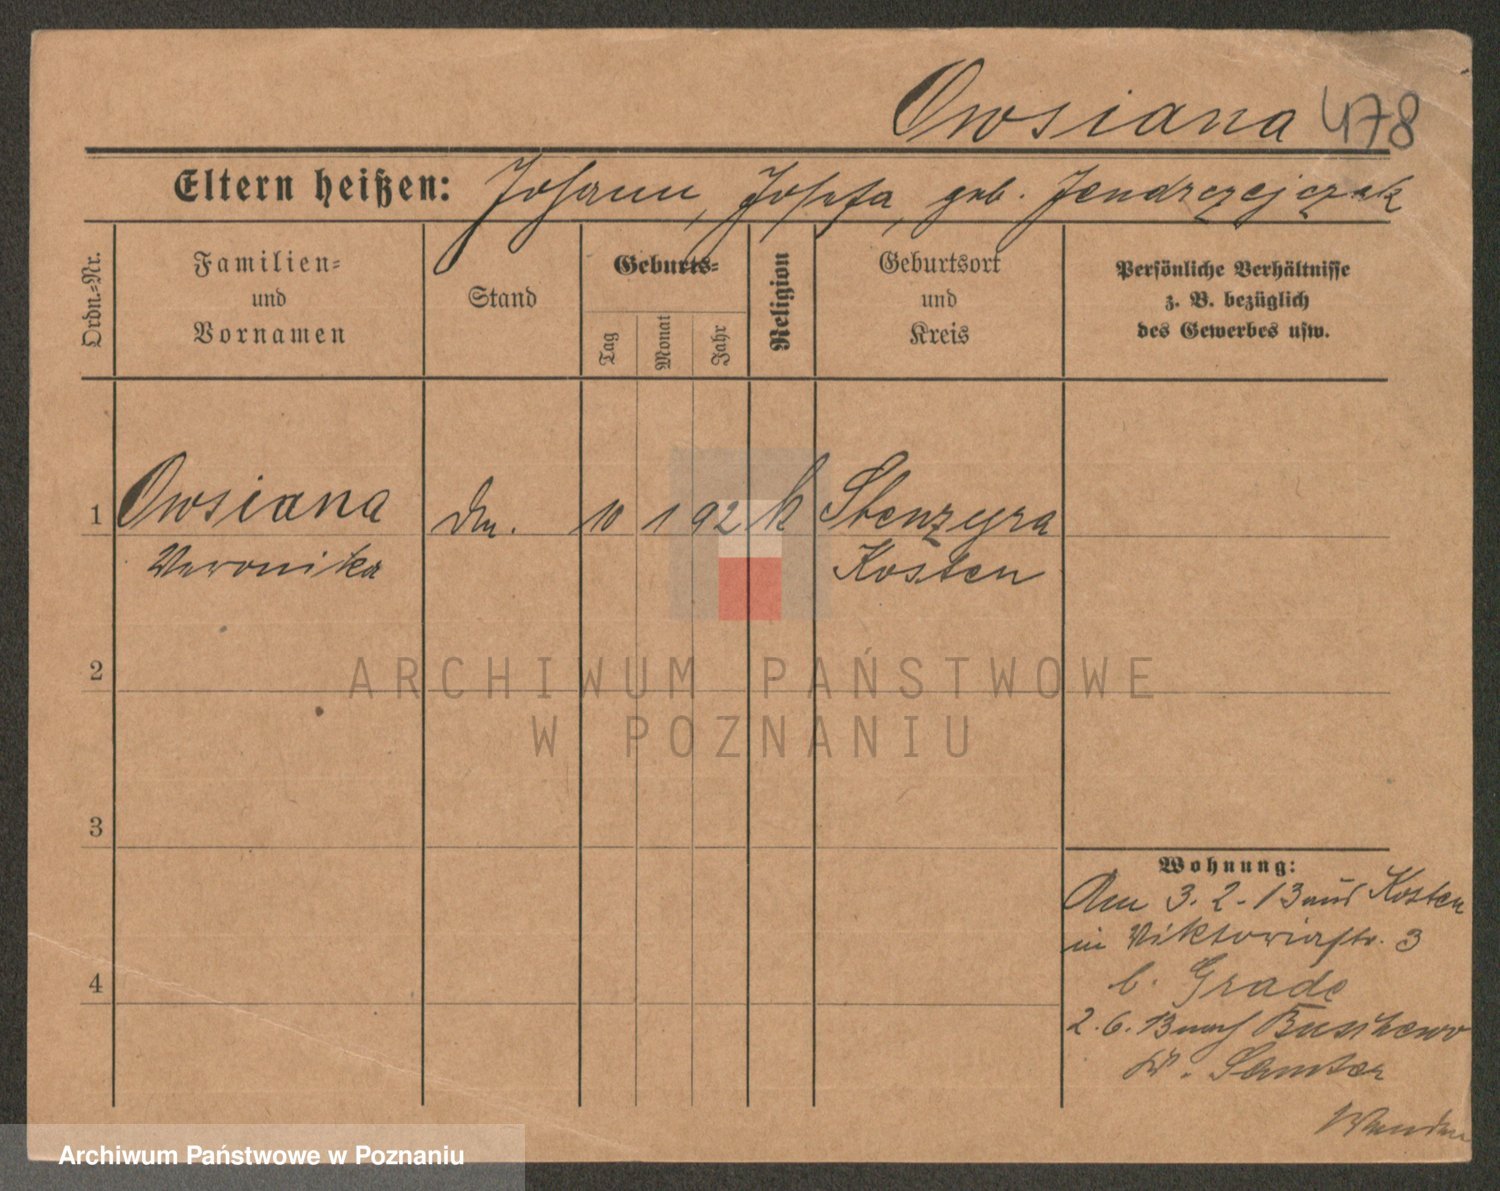 Owsiana 478
Eltern heißen: Johann, Josefa, geb. Jendrzejczak
Ordn.-Nr.
Familien-
und
Vornamen
Stand
Geburts-
Tag
Monat
Jahr
Religion
Geburtsort
und
Kreis
Persönliche Verhältnisse
z. B. bezüglich
des Gewerbes usw.
1 Owsiana 10 1 92 k Stenzyra
Veronika Kosten
2
3
4
ARCHIWUM PAŃSTWOWE
W POZNANIU
Wohnung:
Am 3.2.13 aus Kosten
in Viktoriastr. 3
b. Grade
2.6.13 nach
Kr. Samter
Wenden
Archiwum Państwowe w Poznaniu